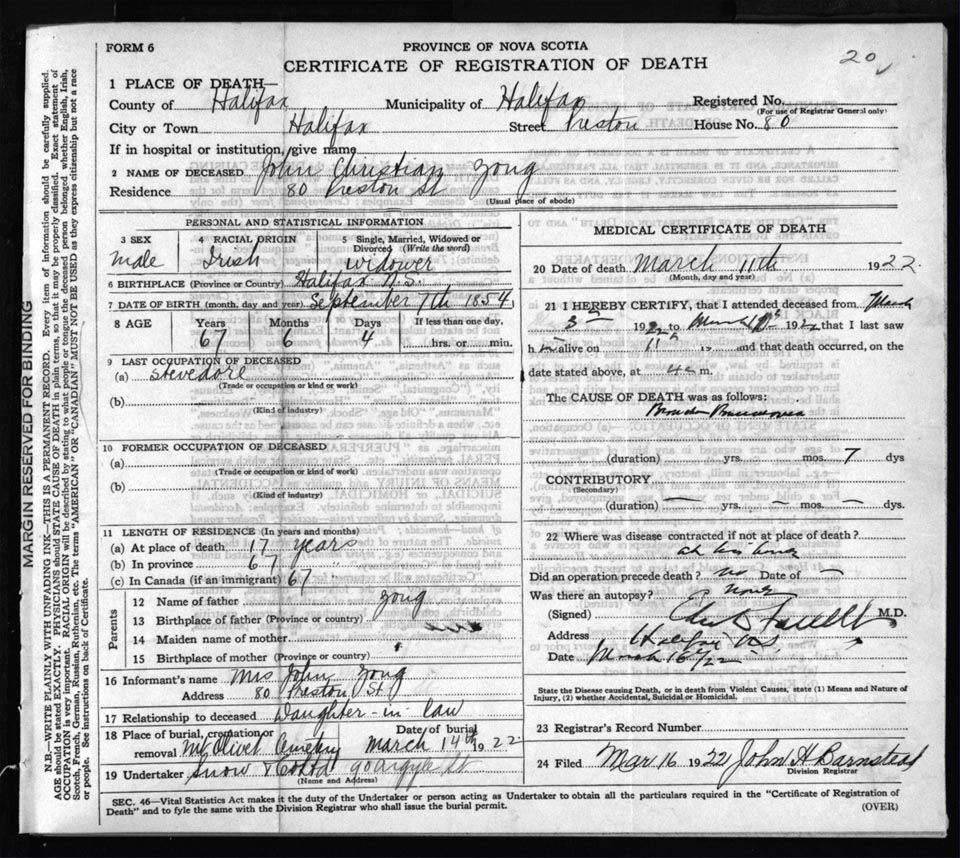 FORM 6
PROVINCE OF NOVA SCOTIA
CERTIFICATE OF REGISTRATION OF DEATH
20
1 PLACE OF DEATH—
County of Halifax Municipality of Halifax Registered No.
(For use of Registrar General only)
City or Town Halifax Street Preston House No. 80
If in hospital or institution, give name
2 NAME OF DECEASED John Christian Zong
Residence 80 Preston St
(Usual place of abode)
PERSONAL AND STATISTICAL INFORMATION
3 SEX 4 RACIAL ORIGIN 5 Single, Married, Widowed or Divorced (Write the word)
male Irish widower
6 BIRTHPLACE (Province or Country) Halifax N.S.
7 DATE OF BIRTH (month, day, and year) September 7th 1854
8 AGE Years Months Days If less than one day,
67 6 4 hrs. or min.
9 LAST OCCUPATION OF DECEASED
(a) Stevedore
(Trade or occupation or kind or work)
(b)
(Kind of industry)
10 FORMER OCCUPATION OF DECEASED
(a)
(Trade or occupation or kind of work)
(b)
(Kind of industry)
11 LENGTH OF RESIDENCE (In years and months)
(a) At place of death 17 years
(b) In province 67
(c) In Canada (if an immigrant) 67
Parents
12 Name of father Zong
13 Birthplace of father (Province or country)
14 Maiden name of mother
15 Birthplace of mother (Province or country)
16 Informant's name Mrs John Zong
Address 80 Preston St
17 Relationship to deceased Daughter-in law
18 Place of burial, cremation or removal Mt Olivet Cemetery Date of burial March 14th 1922
19 Undertaker Snow & 90 Argyle St
(Name and Address)
MEDICAL CERTIFICATE OF DEATH
20 Date of death March 11th 1922
(Month, day and year)
21 I HEREBY CERTIFY, that I attended deceased from March
3 1922 to March 1922 that I last saw
h alive on 11th and that death occurred, on
date stated above, at m.
The CAUSE OF DEATH was as follows:
(duration) yrs. mos. 7 dys
CONTRIBUTORY
(Secondary)
(duration) — yrs. — mos. — dys.
22 Where was disease contracted if not at place of death?
at his home
Did an operation precede death? no Date of —
Was there an autopsy? none
(Signed) M.D.
Address Halifax N.S.
Date March 16/22
State the Disease causing Death, or in death from Violent Causes, state (1) Means and Nature of Injury, (2) whether Accidental, Suicidal or Homicidal.
23 Registrar's Record Number
24 Filed Mar 16 1922 John H Barnstead
Division Registrar
SEC. 46—Vital Statistics Act makes it the duty of the Undertaker or person acting as Undertaker to obtain all the particulars required in the "Certificate of Registration of
Death" and to fyle the same with the Division Registrar who shall issue the burial permit.
(OVER)
MARGIN RESERVED FOR BINDING
N.B.—WRITE PLAINLY WITH UNFADING INK—THIS IS A PERMANENT RECORD. Every item of information should be carefully supplied.
AGE should be stated EXACTLY. PHYSICIANS should STATE CAUSE OF DEATH in plain terms, so that it may be properly classified. Exact statement of
OCCUPATION is very important. RACIAL ORIGIN will be described by stating to what people or tongue the deceased person belonged whether English, Irish,
Scotch, French, German, Russian, Ruthenian, etc. The terms "AMERICAN" OR "CANADIAN" MUST NOT BE USED as they express citizenship but not a race
or people. See instructions on back of Certificate.